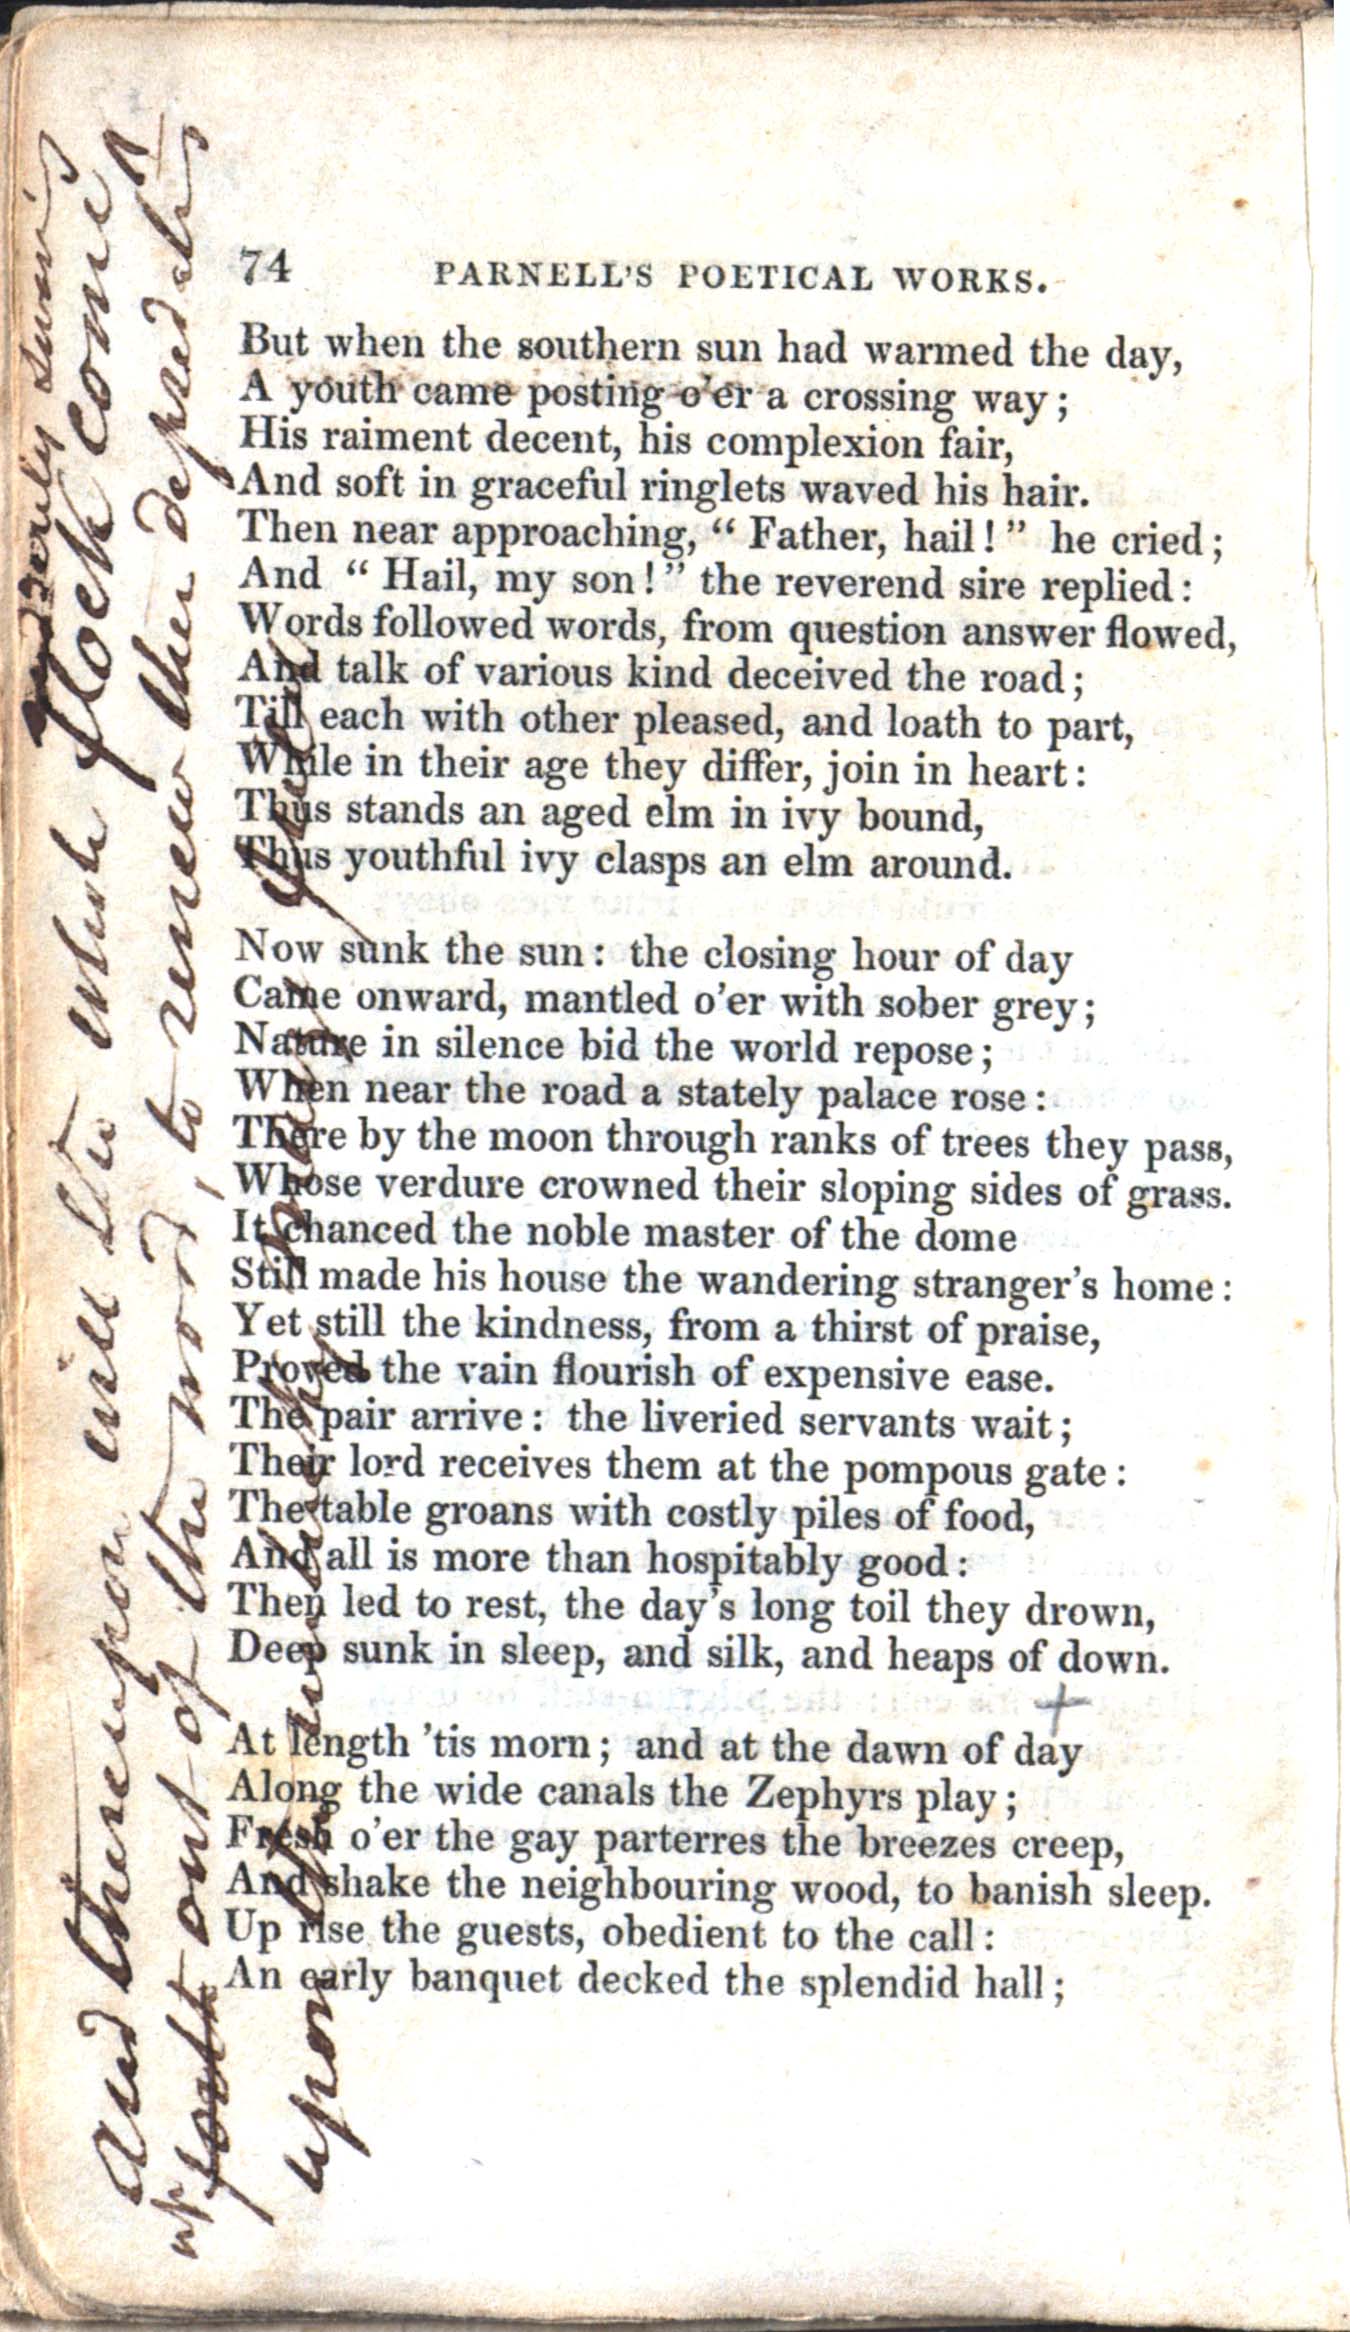 74 PARNELL'S POETICAL WORKS.
But when the southern sun had warmed the day,
A youth came posting o'er a crossing way;
His raiment decent, his complexion fair,
And soft in graceful ringlets waved his hair.
Then near approaching, “ Father, hail!” he cried;
And “ Hail, my son!” the reverend sire replied:
Words followed words, from question answer flowed,
And talk of various kind deceived the road;
Till each with other pleased, and loath to part,
While in their age they differ, join in heart:
Thus stands an aged elm in ivy bound,
Thus youthful ivy clasps an elm around.
Now sunk the sun: the closing hour of day
Came onward, mantled o'er with sober grey;
Nature in silence bid the world repose;
When near the road a stately palace rose:
There by the moon through ranks of trees they pass,
Whose verdure crowned their sloping sides of grass.
It chanced the noble master of the dome
Still made his house the wandering stranger's home:
Yet still the kindness, from a thirst of praise,
Proved the vain flourish of expensive ease.
The pair arrive: the liveried servants wait;
Their lord receives them at the pompous gate:
The table groans with costly piles of food,
And all is more than hospitably good:
Then led to rest, the day's long toil they drown,
Deep sunk in sleep, and silk, and heaps of down.
+
At length 'tis morn; and at the dawn of day
Along the wide canals the Zephyrs play;
Fresh o'er the gay parterres the breezes creep,
And shake the neighbouring wood, to banish sleep.
Up rise the guests, obedient to the call:
An early banquet decked the splendid hall;
and thereupon will the whole flock come
out of the wood, to renew their
upon the